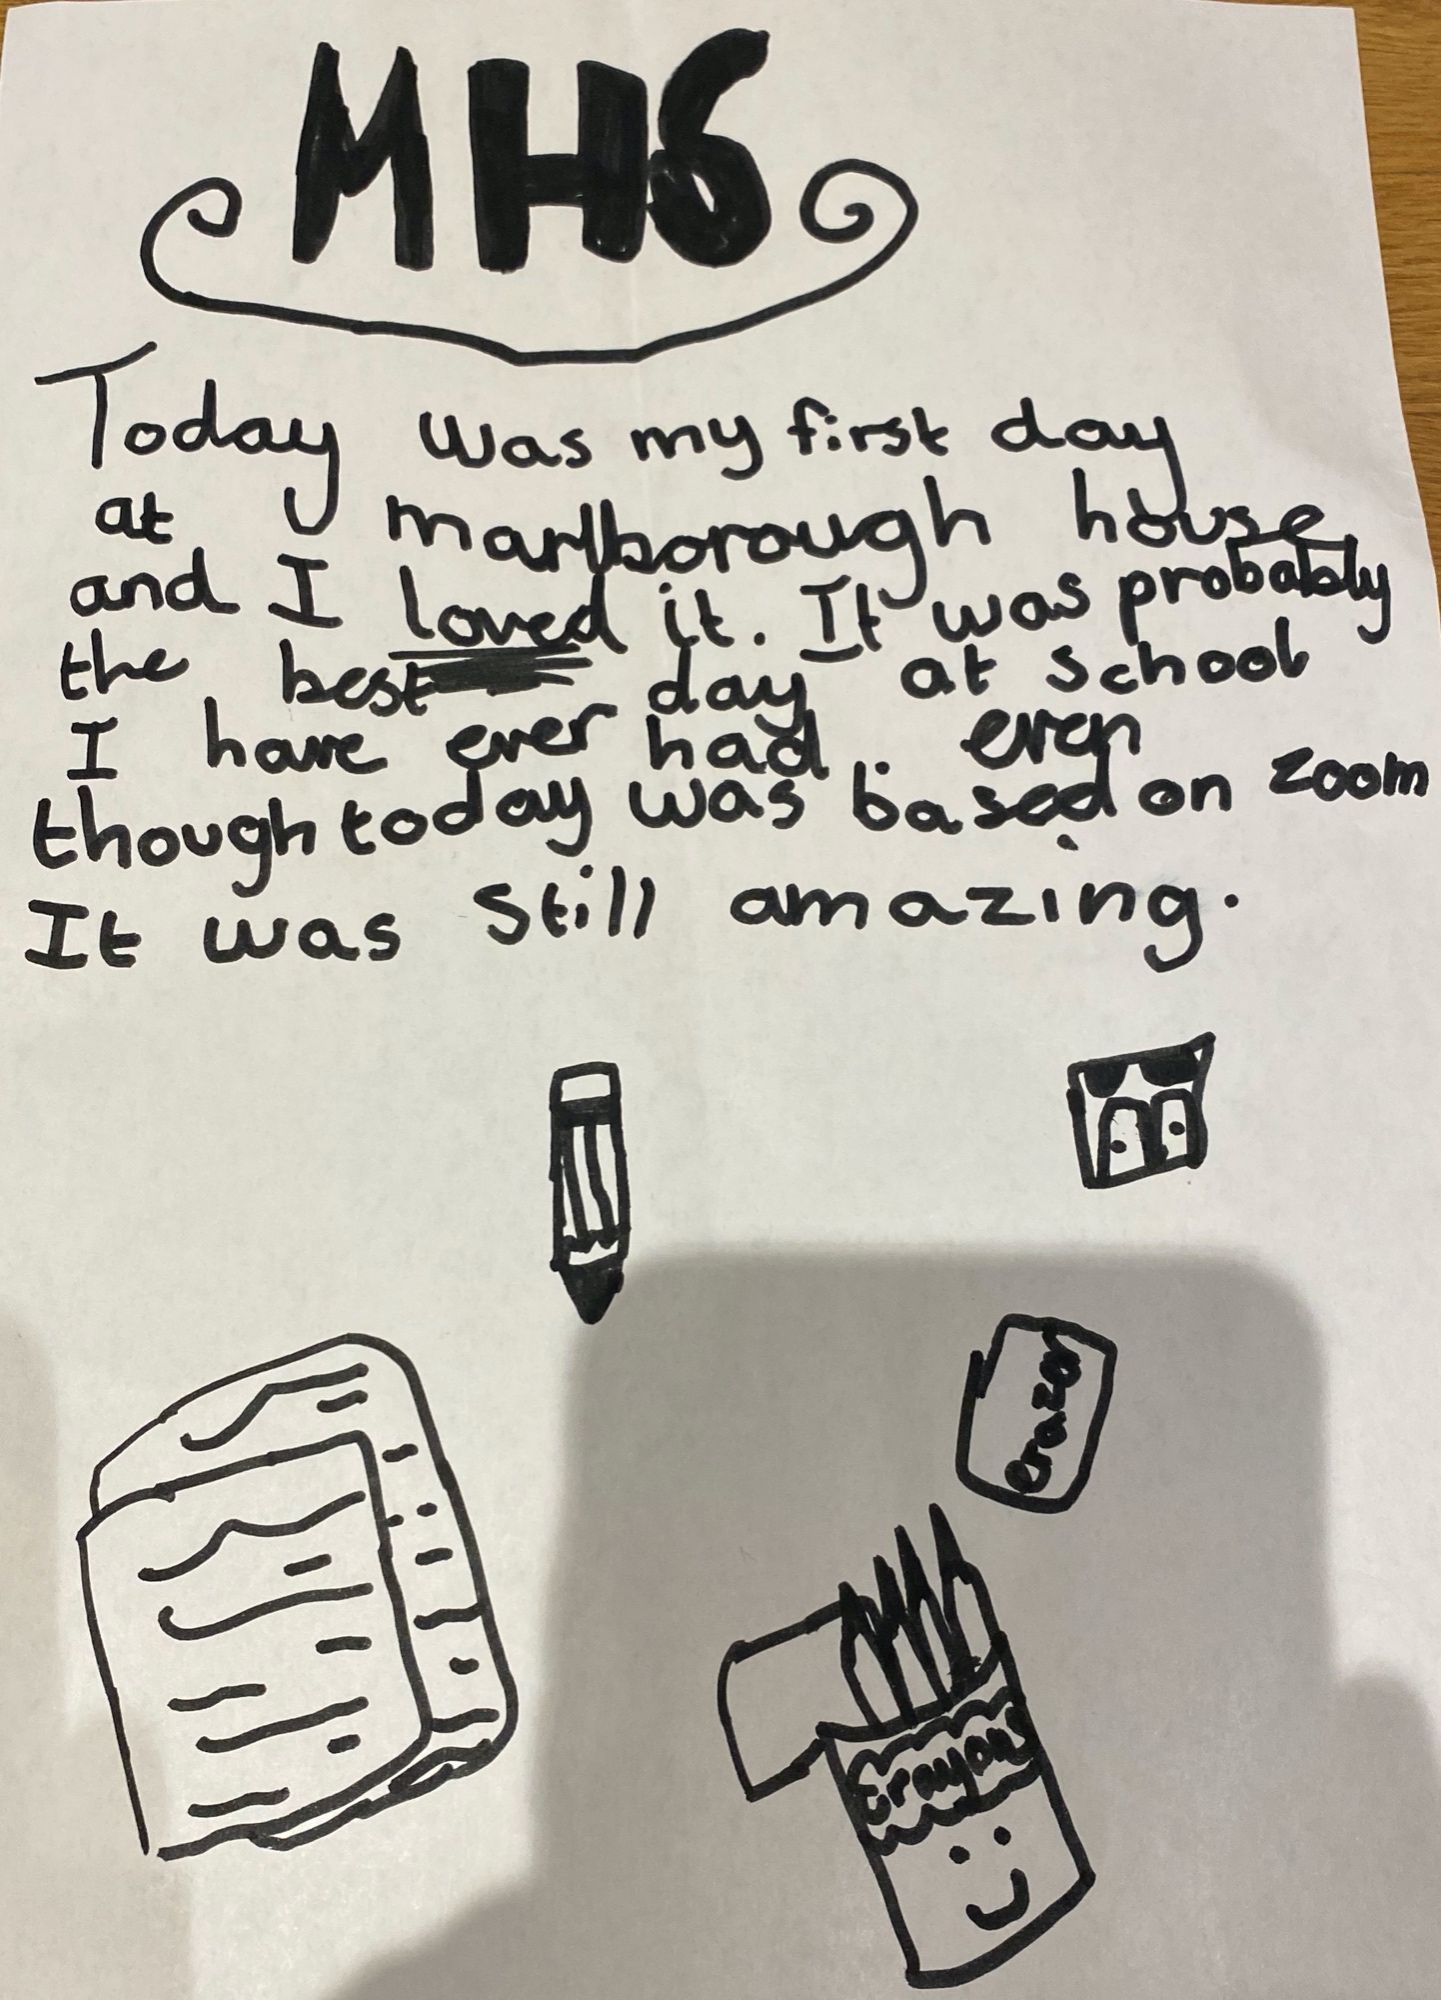 MHS
Today was my first day
at marlborough house
and I loved it. It was probably
the best day at school
I have ever had. even
though today was based on zoom
It was still amazing.
erazer
Crayons